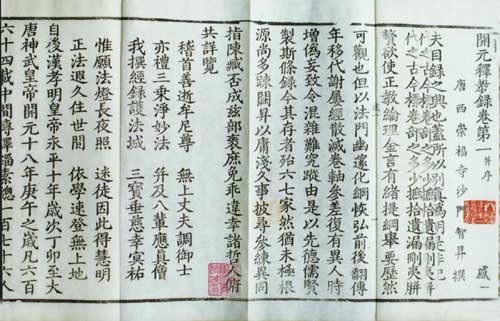 開元釋教錄卷第一并序
唐西崇福寺沙門智昇撰
夫目錄之興也蓋所以別真偽明是非記
人代之古今標卷部之多少摭拾遺漏刪夷駢
贅欲使正教綸理金言有緒提綱舉要歷然
可觀也但以法門幽邃化網恢弘前後翻傳
年移代謝屢經散滅卷軸參差復有異人時
增偽妄致令混雜難究蹤由是以先德儒賢
製斯條錄今其存者殆六七家然猶未極根
源尚多踈闕昇以庸淺久事披尋參練異同
指陳臧否成茲部袠庶免乖違幸諸哲人俯
共詳覽
稽首善逝牟尼尊 無上丈夫調御士
亦禮三乘淨妙法 并及八輩應真僧
我撰經錄護法城 三寶垂慈幸冥祐
惟願法燈長夜照 迷徒因此得慧明
正法遐久住世間 依學速登無上地
自後漢孝明皇帝永平十年歲次丁卯至大
唐神武皇帝開元十八年庚午之歲凡六百
六十四載中間傳譯緇素總一百七十六人